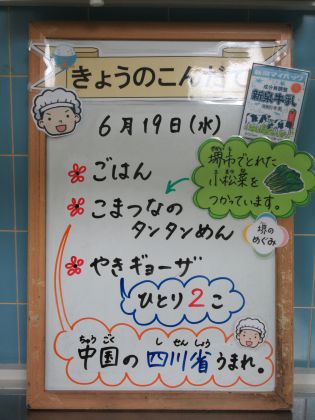 きょうのこんだて
6月19日(水)
ごはん
こまつなの
タンタンめん
やきギョーザ
ひとり2こ
中国の四川省うまれ。
ちゅうごく
しせんしょう
堺市でとれた
小松菜を
つかっています。
さかいし
こまつな
堺の
めぐみ
新泉牛乳
成分無調整